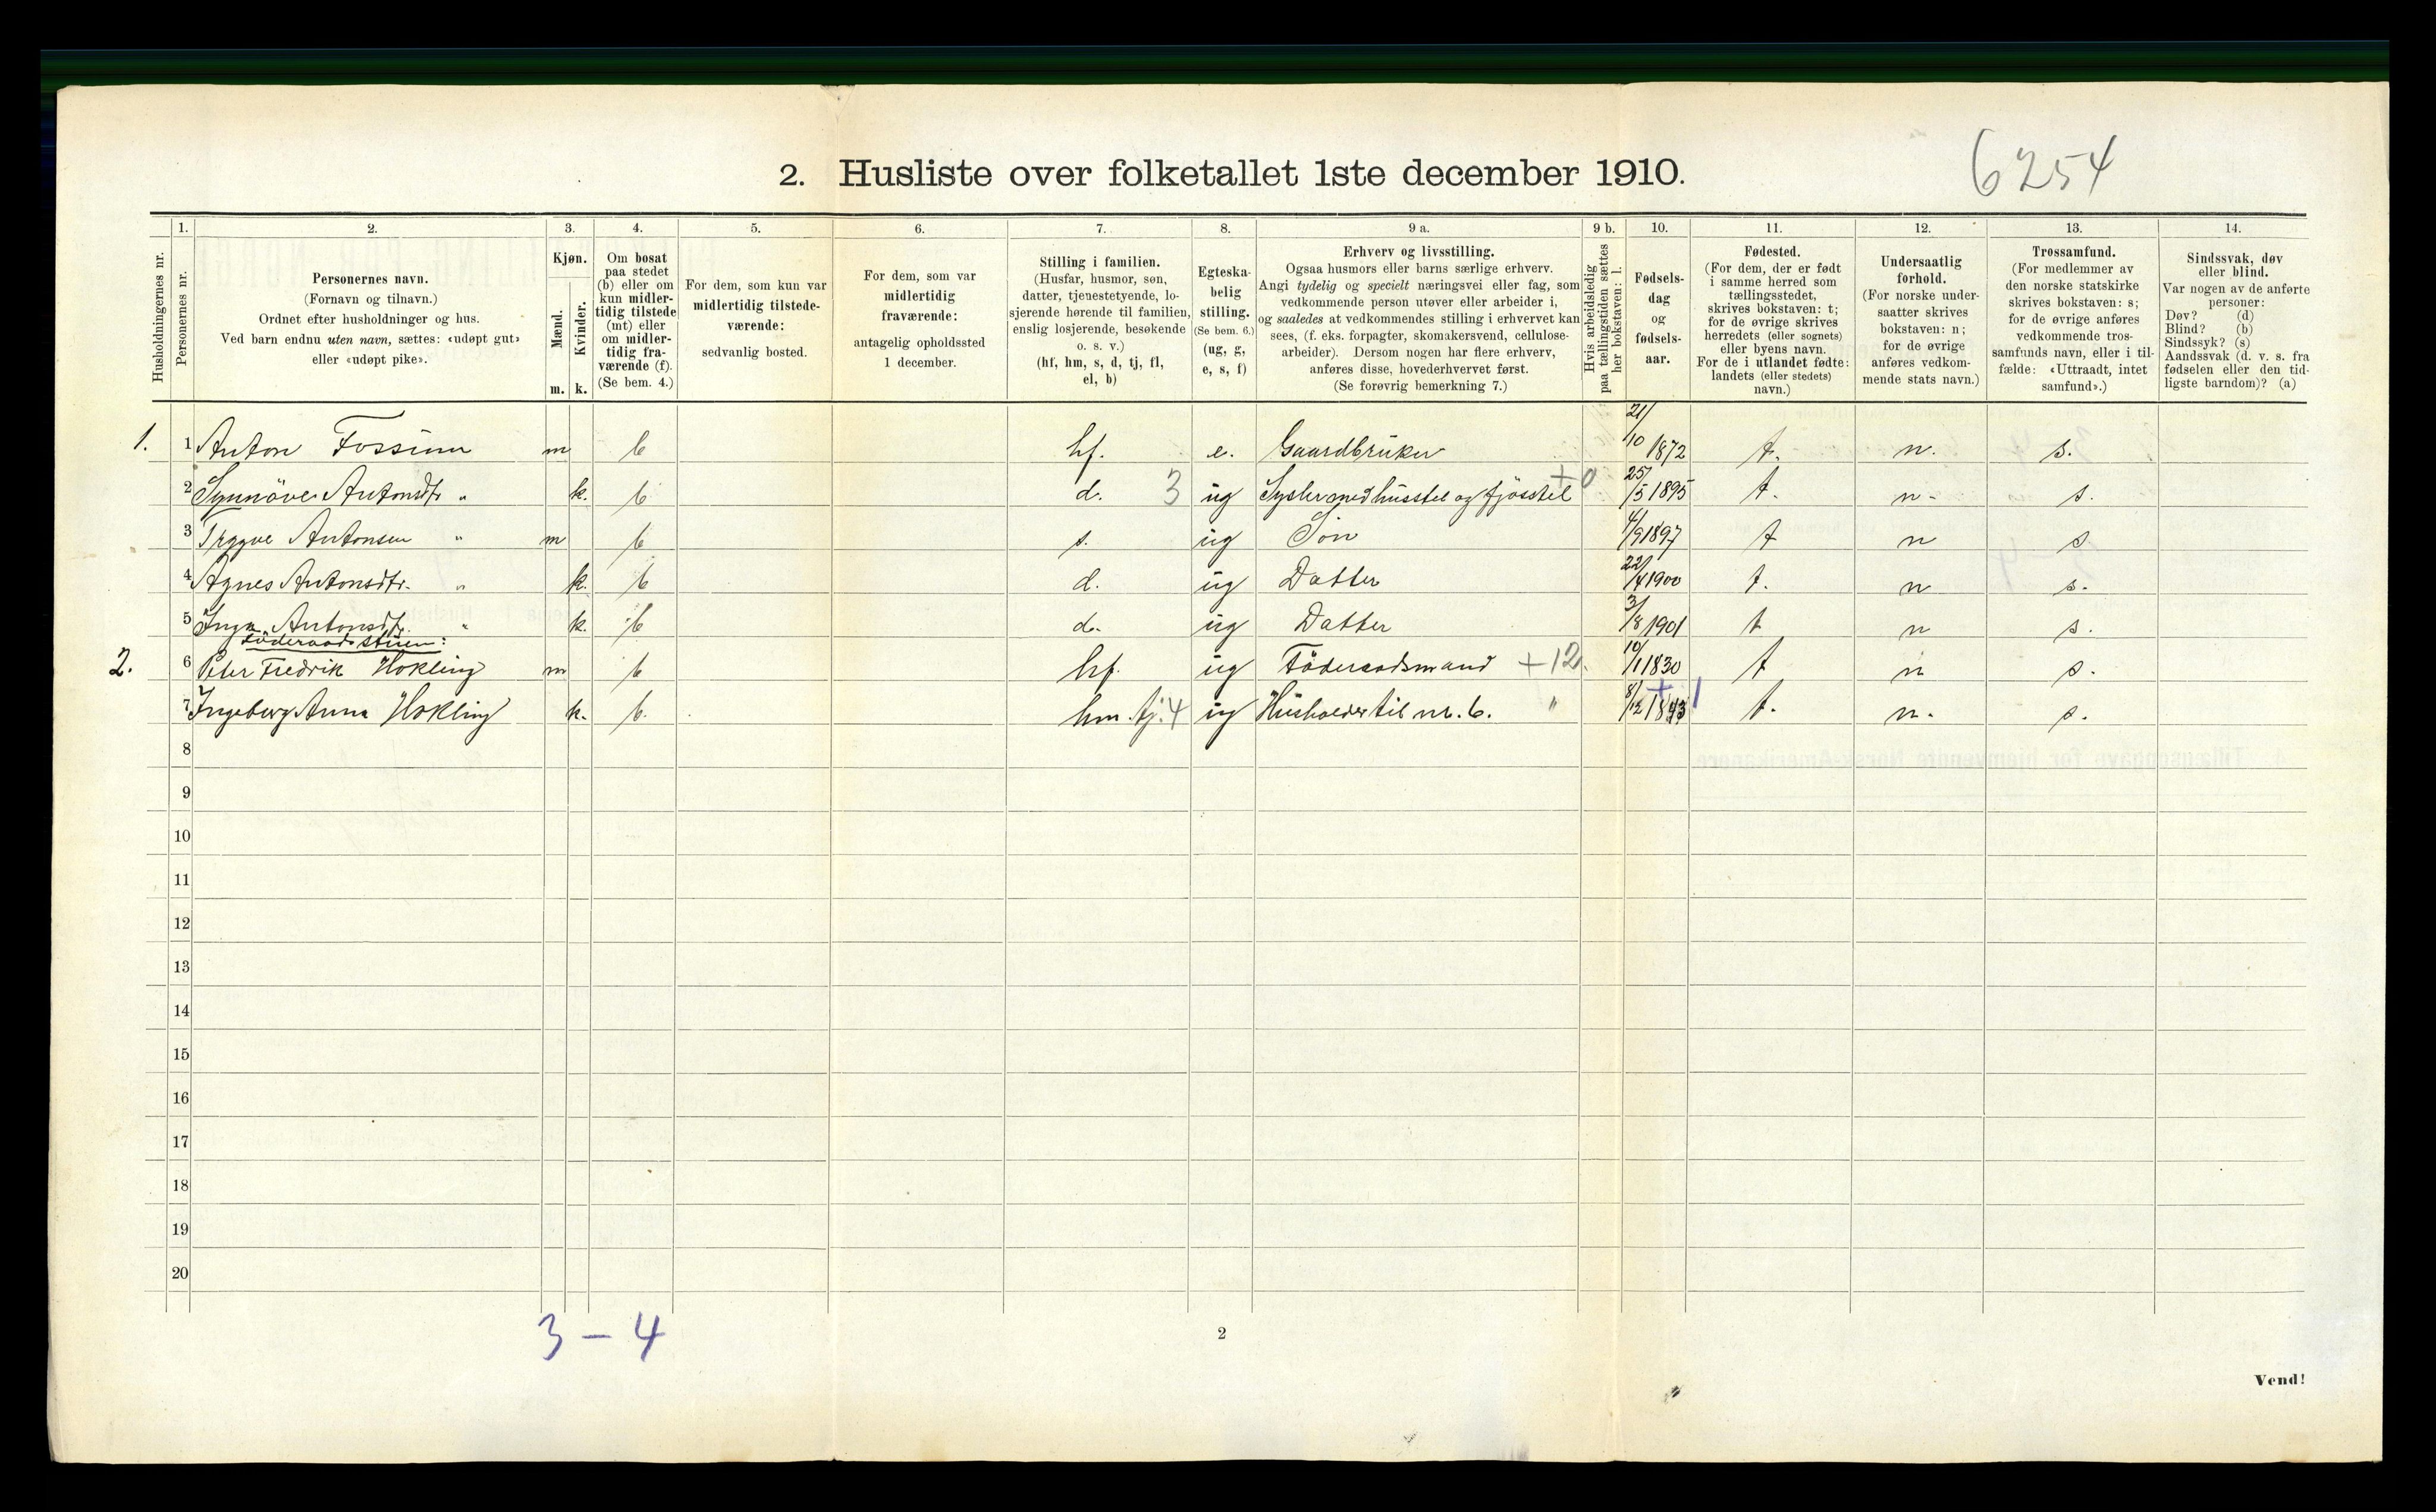 2. Husliste over folketallet 1ste december 1910.
6254
Husholdningernes nr.
1. Personernes nr.
2. Personernes navn.
(Fornavn og tilnavn.)
Ordnet efter husholdninger og hus.
Ved barn endnu uten navn, sættes: «udøpt gut»
eller «udøpt pike».
3. Kjøn.
Mænd. m.
Kvinder. k.
4. Om bosat
paa stedet
(b) eller om
kun midler-
tidig tilstede
(mt) eller
om midler-
tidig fra-
værende (f).
(Se bem. 4.)
5. For dem, som kun var
midlertidig tilstede-
værende:
sedvanlig bosted.
6. For dem, som var
midlertidig
fraværende:
antagelig opholdssted
1 december.
7. Stilling i familien.
(Husfar, husmor, søn,
datter, tjenestetyende, lo-
sjerende hørende til familien,
enslig losjerende, besøkende
o. s. v.)
(hf, hm, s, d, tj, fl,
el, b)
8. Egteska-
belig
stilling.
(Se bem. 6.)
(ug, g,
e, s, f)
9 a. Erhverv og livsstilling.
Ogsaa husmors eller barns særlige erhverv.
Angi tydelig og specielt næringsvei eller fag, som
vedkommende person utøver eller arbeider i,
og saaledes at vedkommendes stilling i erhvervet kan
sees, (f. eks. forpagter, skomakersvend, cellulose-
arbeider). Dersom nogen har flere erhverv,
anføres disse, hovederhvervet først.
(Se forøvrig bemerkning 7.)
9 b. Hvis arbeidsledig
paa tællingstiden sættes
her bokstaven: l.
10. Fødsels-
dag
og
fødsels-
aar.
11. Fødested.
(For dem, der er født
i samme herred som
tællingsstedet,
skrives bokstaven: t;
for de øvrige skrives
herredets (eller sognets)
eller byens navn.
For de i utlandet fødte:
landets (eller stedets)
navn.)
12. Undersaatlig
forhold.
(For norske under-
saatter skrives
bokstaven: n;
for de øvrige
anføres vedkom-
mende stats navn.)
13. Trossamfund.
(For medlemmer av
den norske statskirke
skrives bokstaven: s;
for de øvrige anføres
vedkommende tros-
samfunds navn, eller i til-
fælde: «Uttraadt, intet
samfund».)
14. Sindssvak, døv
eller blind.
Var nogen av de anførte
personer:
Døv? (d)
Blind? (b)
Sindssyk? (s)
Aandssvak (d. v. s. fra
fødselen eller den tid-
ligste barndom)? (a)
1. 1 Anton Fossum m b hf. e. Gaardbruker 21/10 1872 t. n. s.
2 Synnöve Antonsdtr " k. b d. 3 ug Sysler med husstel og fjösstel +0 25/5 1895 t. n. s.
3 Trygve Antonsen " m b s. ug Sön 4/9 1897 t n s
4 Agnes Antonsdtr. " k. b d. ug Datter 22/4 1900 t. n s.
5 Inga Antonsdtr. " k. b d. ug Datter 3/8 1901 t n s.
Föderaadsstuen:
2. 6 Peter Fredrik Hokling m b hf. ug Föderaadsmand +12. 10/1 1830 t n s.
7 Ingeborg Anna Hokling k. b. hm. tj. 4 ug Husholder til nr. 6. " 8/12 1843 +1 t. n. s.
8
9
10
11
12
13
14
15
16
17
18
19
20
3 - 4
2
Vend!